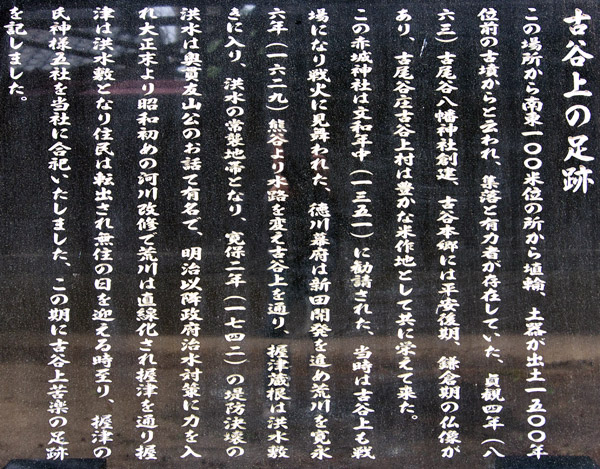 古谷上の足跡
この場所から南東一〇〇米位の所から埴輪、土器が出土一五〇〇年
位前の古墳からと云われ、集落と有力者が存在していた、貞観四年（八
六三）古尾谷八幡神社創建、古谷本郷には平安後期、鎌倉期の仏像が
あり、古尾谷庄古谷上村は豊かな米作地として共に栄えて来た。
この赤城神社は文和年中（一三五一）に勧請された、当時は古谷上も戦
場になり戦火に見舞われた、徳川幕府は新田開発を進め荒川を寛永
六年（一六二九）熊谷より水路を変え古谷上を通り、握津蔵根は洪水敷
きに入り、洪水の常襲地帯となり、寛保二年（一七四二）の堤防決壊の
洪水は奥貫友山公のお話で有名で、明治以降政府治水対策に力を入
れ大正末より昭和初めの河川改修で荒川は直線化され握津を通り握
津は洪水敷となり住民は転出され無住の日を迎える時至り、握津の
民神様五社を当社に合祀いたしました、この期に古谷上苦楽の足跡
を記しました。